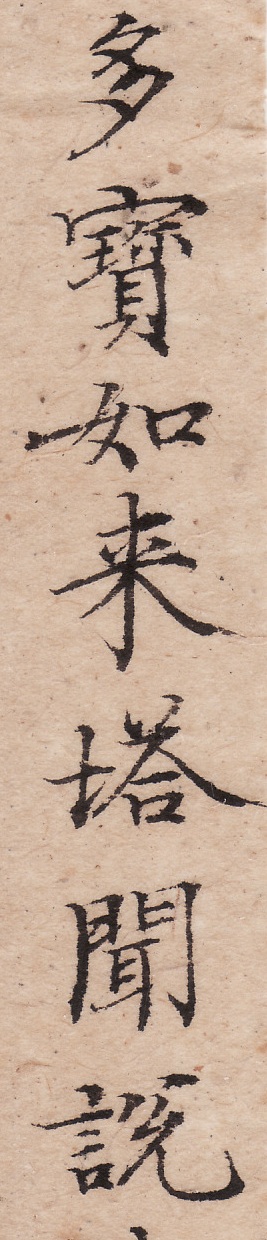 多寶如来塔聞説